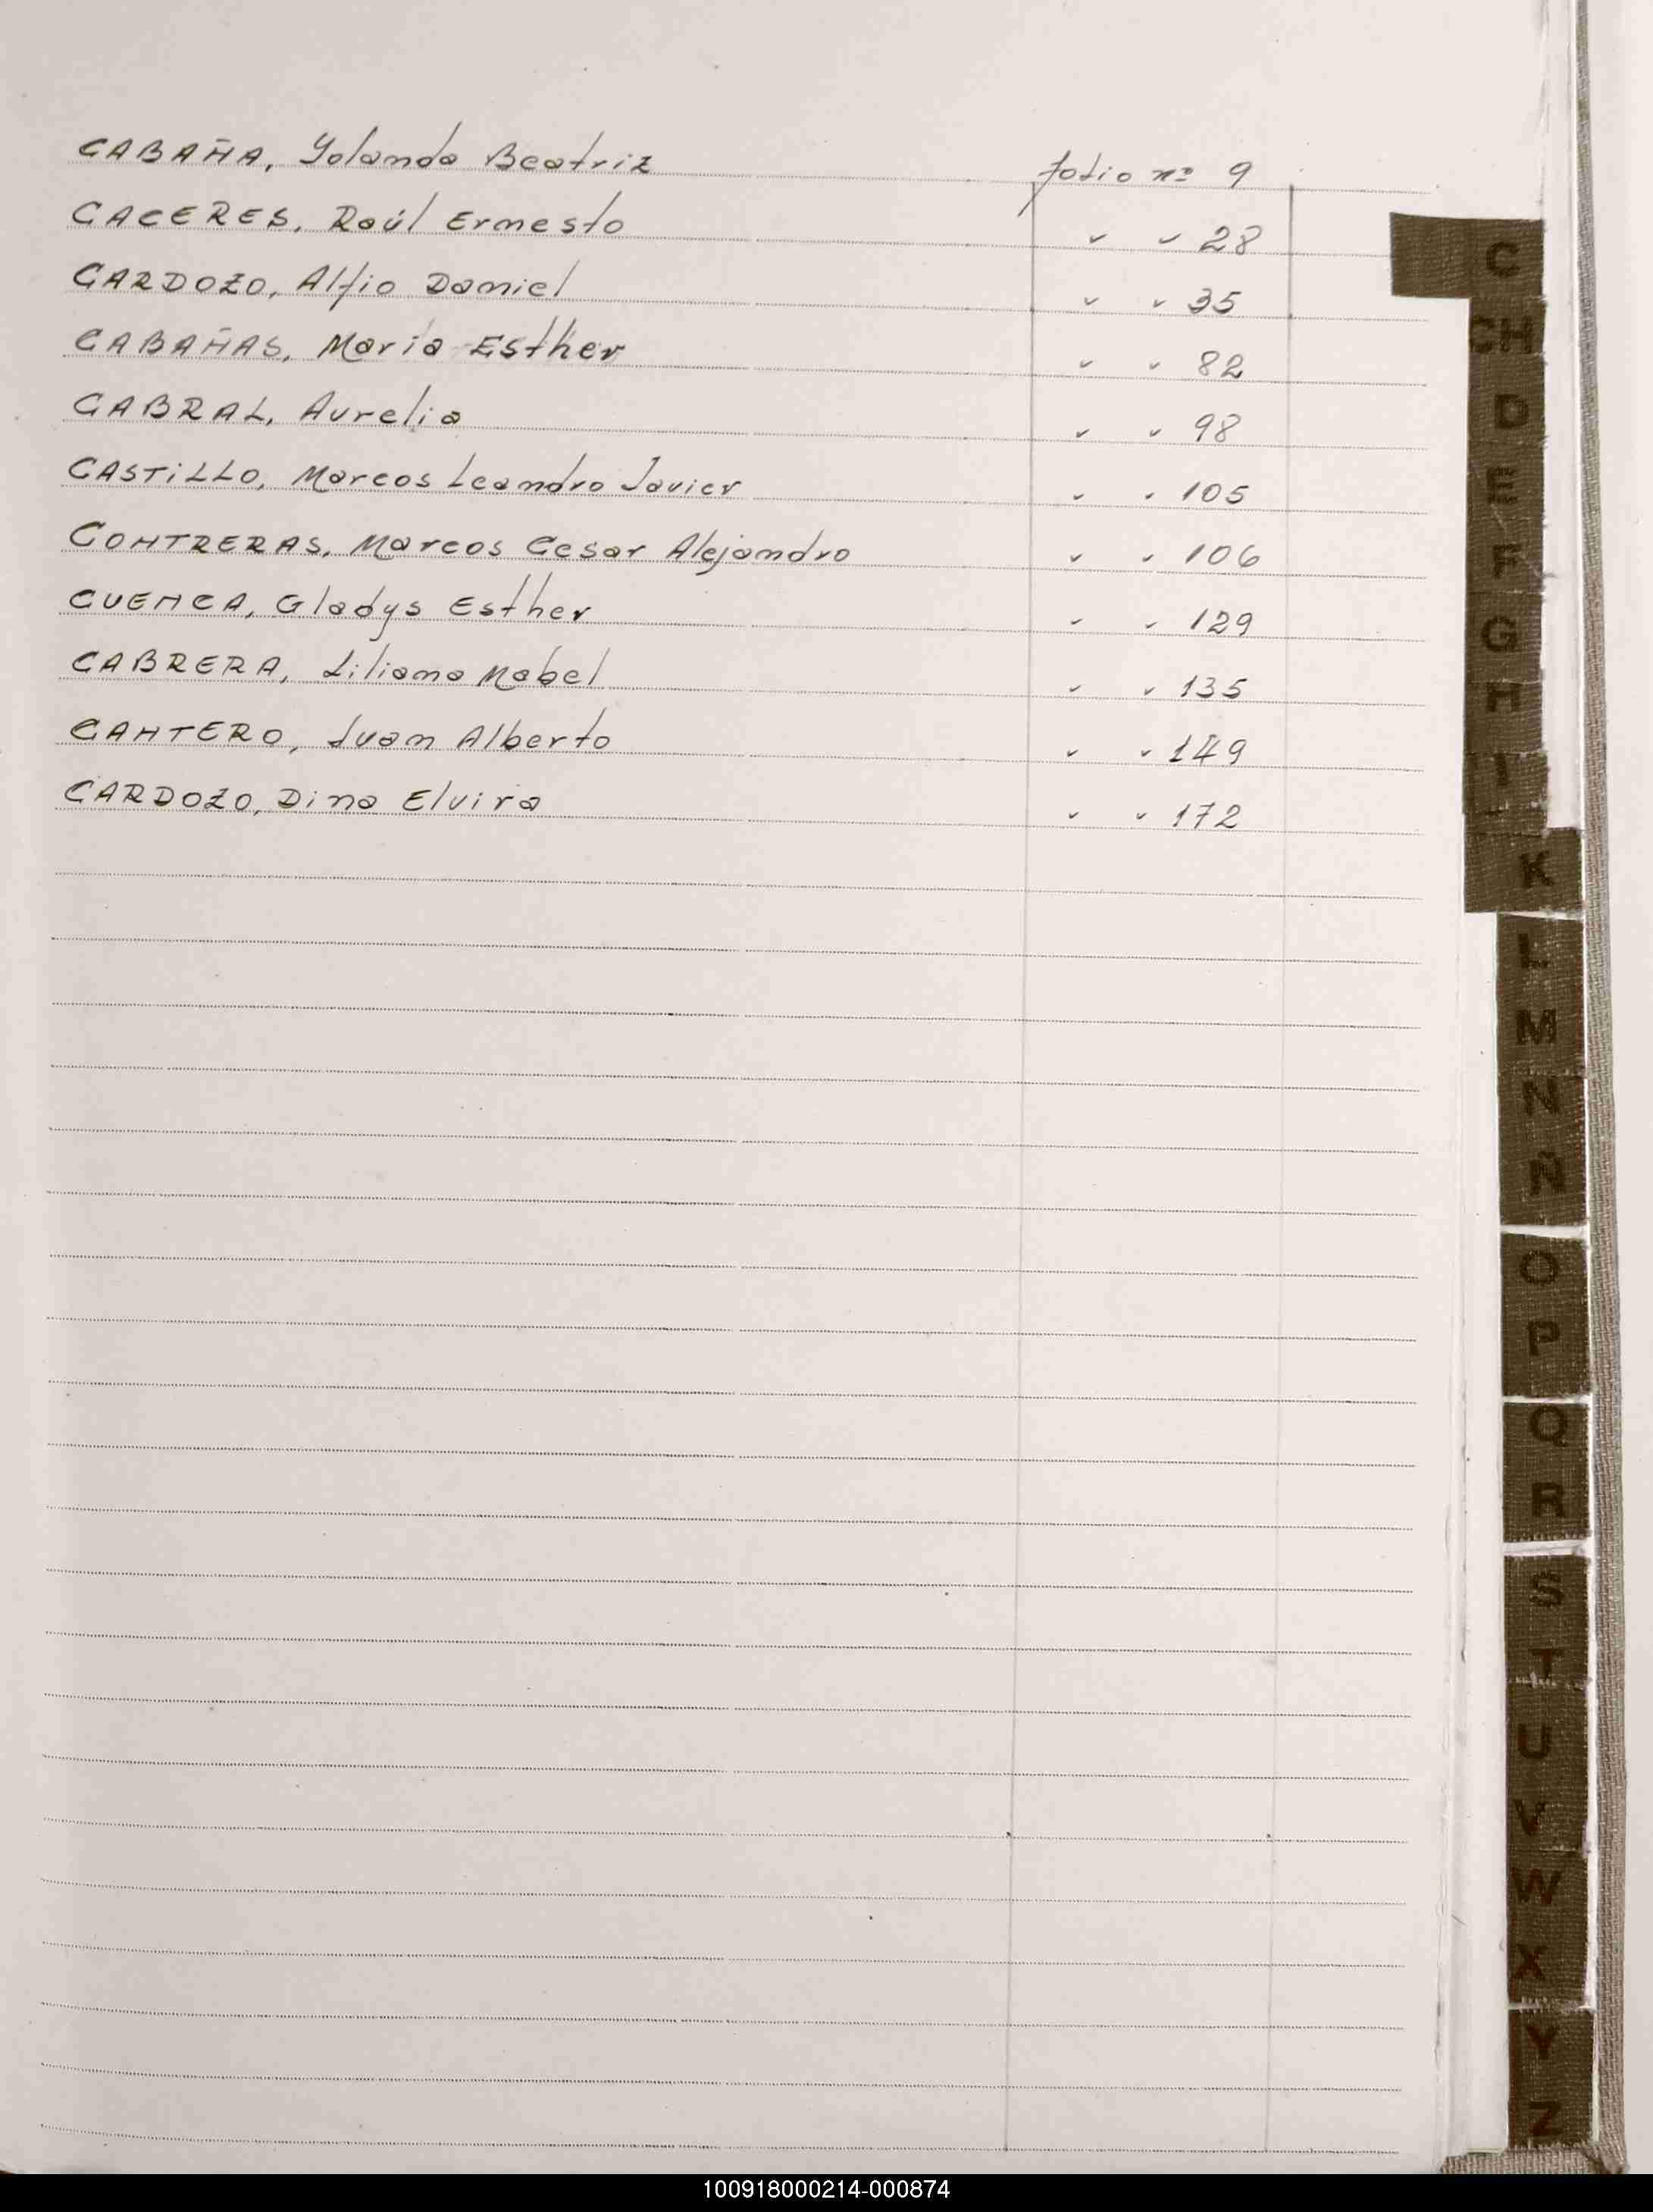 CABAÑA, Yolanda Beatriz folio nº 9
CACERES, Raúl Ernesto " " 28
CARDOZO, Alfio Daniel " " 35
CABAÑAS, María Esther " " 82
CABRAL, Aurelia " " 98
CASTILLO, Marcos Leandro Javier " " 105
CONTRERAS, Marcos Cesar Alejandro " " 106
CUENCA, Gladys Esther " " 129
CABRERA, Liliana Mabel " " 135
CANTERO, Juan Alberto " " 149
CARDOZO, Dina Elvira " " 172
C
CH
D
E
F
G
H
I
K
L
M
N
Ñ
O
P
Q
R
S
T
U
V
W
X
Y
Z
100918000214-000874